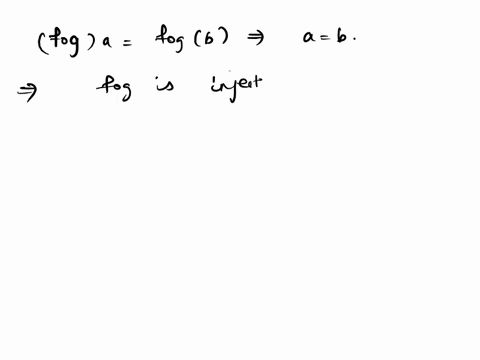 (fog) a = fog (b) ⇒ a = b.
⇒ fog is inject